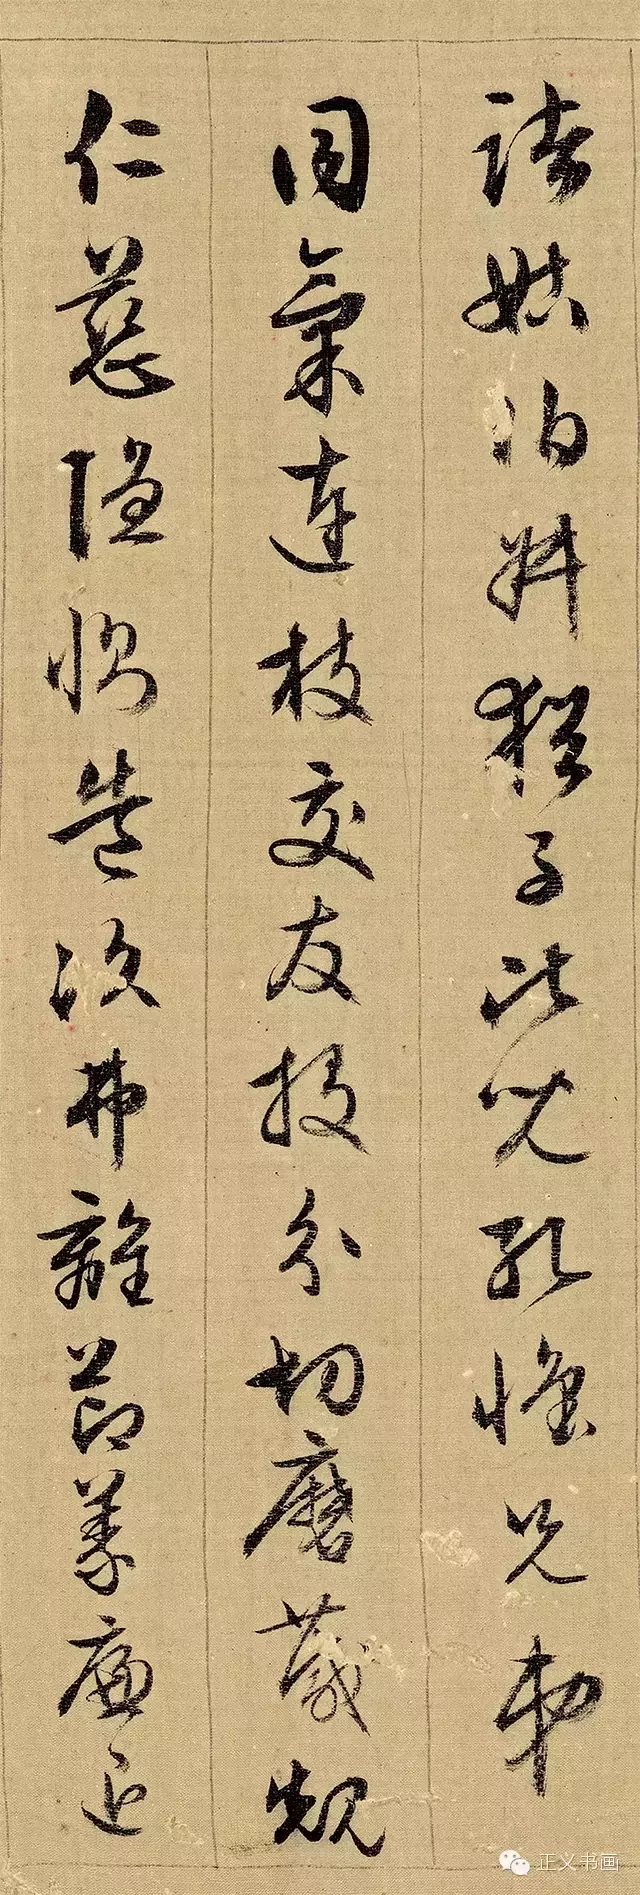 諸姑伯叔猶子比兒孔懷兄弟
同氣連枝交友投分切磨箴規
仁慈隱惻造次弗離節義廉退
正义书画